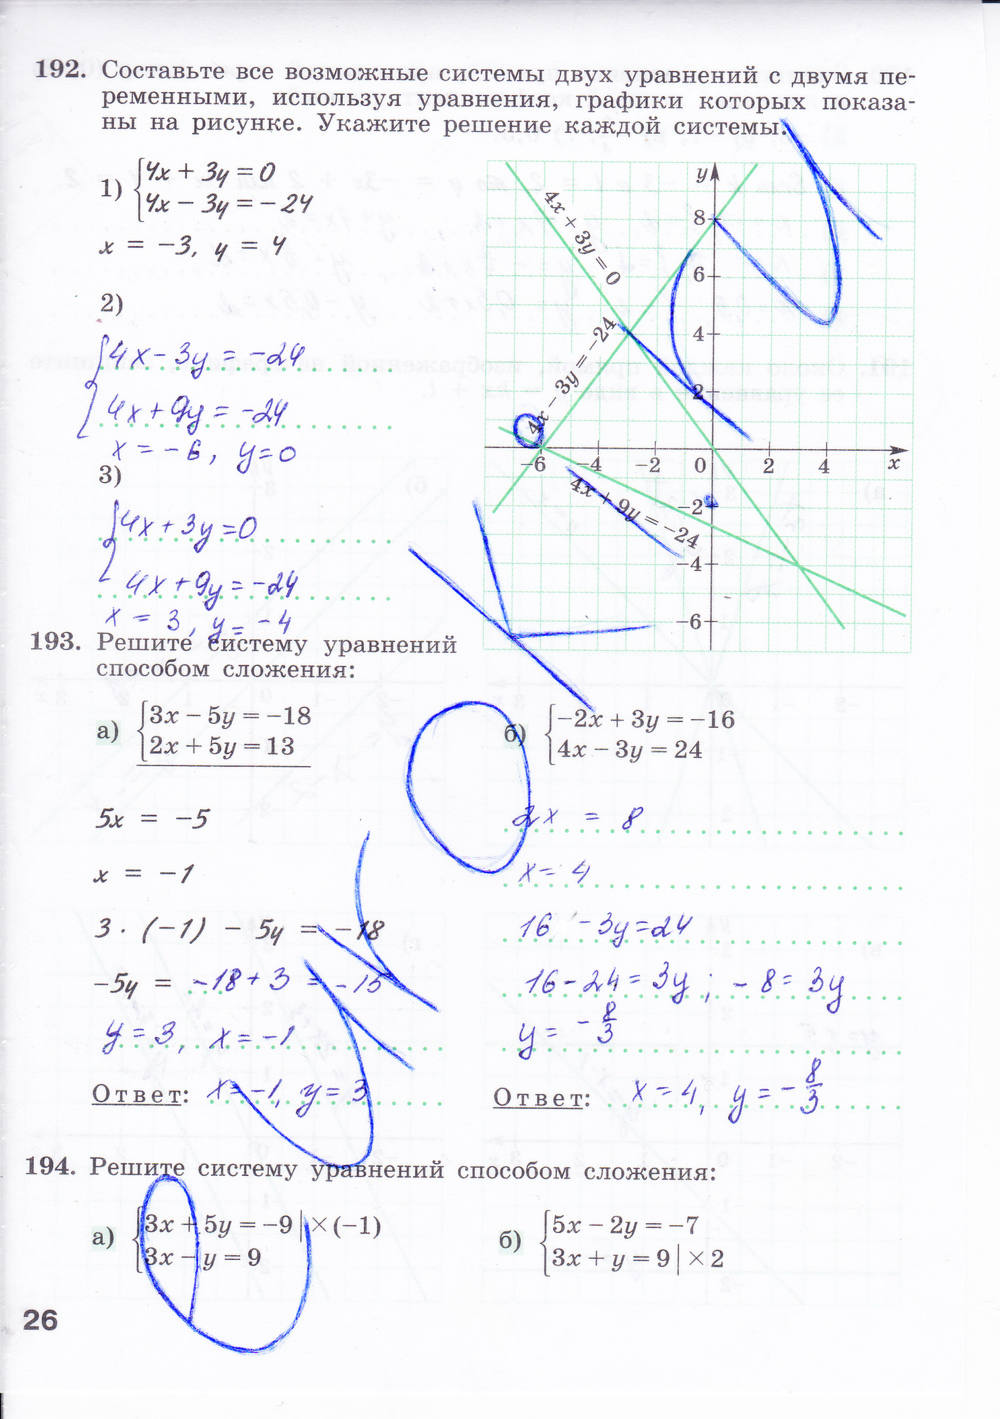 192. Составьте все возможные системы двух уравнений с двумя пе-
ременными, используя уравнения, графики которых показа-
ны на рисунке. Укажите решение каждой системы.
1) 4x + 3y = 0
4x − 3y = −24
x = −3, y = 4
2)
4x − 3y = −24
4x + 9y = −24
x = −6, y = 0
3)
4x + 3y = 0
4x + 9y = −24
x = 3, y = −4
y
8
6
4
2
−6 −4 −2 0 2 4 x
−2
−4
−6
4x + 3y = 0
4x − 3y = −24
4x + 9y = −24
193. Решите систему уравнений
способом сложения:
а) 3x − 5y = −18
2x + 5y = 13
5x = −5
x = −1
3 · (−1) − 5y = −18
−5y = −18 + 3 = −15
y = 3, x = −1
Ответ: x = −1, y = 3
б) −2x + 3y = −16
4x − 3y = 24
2x = 8
x = 4
16 − 3y = 24
16 − 24 = 3y ; −8 = 3y
y = −8/3
Ответ: x = 4, y = −8/3
194. Решите систему уравнений способом сложения:
а) 3x + 5y = −9 | × (−1)
3x − y = 9
б) 5x − 2y = −7
3x + y = 9 | × 2
26